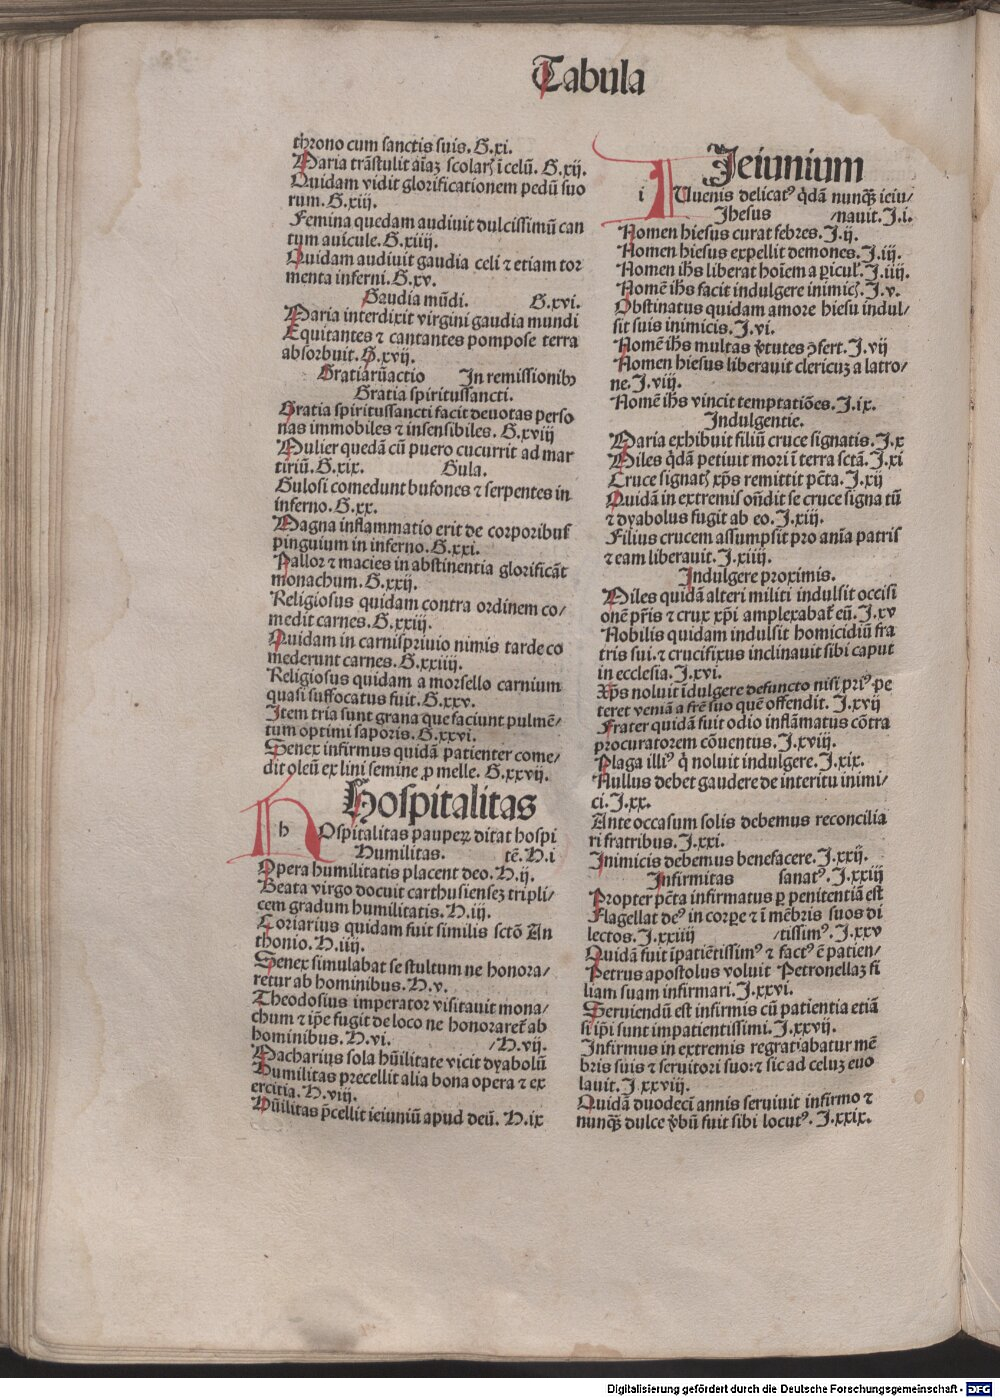 Tabula
throno cum sanctis suis. G.xi.
Maria trāstulit aīaʒ scolarꝭ ī celū. G.xij.
Quidam vidit glorificationem pedū suo
rum. G.xiij.
Femina quedam audiuit dulcissimū can
tum auicule. G.xiiij.
Quidam audiuit gaudia celi ⁊ etiam tor
menta inferni. G.xv.
Gaudia mūdi. G.xvi.
Maria interdixit virgini gaudia mundi
Equitantes ⁊ cantantes pompose terra
absorbuit. G.xvij.
Gratiarūactio In remissionibꝰ
Gratia spiritussancti.
Gratia spiritussancti facit deuotas perso
nas immobiles ⁊ insensibiles. G.xviij
Mulier quedā cū puero cucurrit ad mar
tiriū. G.xix. Gula.
Gulosi comedunt bufones ⁊ serpentes in
inferno. G.xx.
Magna inflammatio erit de corporibus
pinguium in inferno. G.xxi.
Pallor ⁊ macies in abstinentia glorificāt
monachum. G.xxij.
Religiosus quidam contra ordinem co/
medit carnes. G.xxiij.
Quidam in carnispriuio nimis tarde co
mederunt carnes. G.xxiiij.
Religiosus quidam a morsello carnium
quasi suffocatus fuit. G.xxv.
Item tria sunt grana que faciunt pulmē/
tum optimi saporis. G.xxvi.
Senex infirmus quidā patienter come/
dit oleū ex lini semine ꝓ melle. G.xxvij.
Hospitalitas
h Ospitalitas pauperꝝ ditat hospi
Humilitas. tē. H.i
Opera humilitatis placent deo. H.ij.
Beata virgo docuit carthusiensez tripli/
cem gradum humilitatis. H.iij.
Coriarius quidam fuit similis sctō An
thonio. H.iiij.
Senex simulabat se stultum ne honora/
retur ab hominibus. H.v.
Theodosius imperator visitauit mona/
chum ⁊ ip̄e fugit de loco ne honoraret᷑ ab
hominibus. H.vi. /H.vij.
Macharius sola hūilitate vicit dyabolū
Humilitas precellit alia bona opera ⁊ ex
ercitia. H.viij.
Hūilitas p̄cellit ieiuniū apud deū. H.ix
Jeiunium
i Uuenis delicatꝰ q̄dā nunqꝫ ieiu/
Jhesus /nauit. J.i.
Nomen hiesus curat febres. J.ij.
Nomen hiesus expellit demones. J.iij.
Nomen ih̄s liberat hoīem a ꝑiculꝭ. J.iiij.
Nomē ih̄s facit indulgere inimicꝭ. J.v.
Obstinatus quidam amore hiesu indul/
sit suis inimicis. J.vi.
Nomē ih̄s multas v̄tutes ꝯfert. J.vij
Nomen hiesus liberauit clericuʒ a latro/
ne. J.viij.
Nomē ih̄s vincit temptatiōes. J.ix.
Indulgentie.
Maria exhibuit filiū cruce signatis. J.x
Miles q̄dā petiuit mori ī terra sctā. J.xi
Cruce signatꝭ xp̄s remittit pc̄ta. J.xij
Quidā in extremis oñdit se cruce signa tū
⁊ dyabolus fugit ab eo. J.xiij.
Filius crucem assumpsit pro anīa patris
⁊ eam liberauit. J.xiiij.
Indulgere proximis.
Miles quidā alteri militi indulsit occisi
onē pr̄is ⁊ crux xp̄i amplexabat᷑ eū. J.xv
Nobilis quidam indulsit homicidiū fra
tris sui. ⁊ crucifixus inclinauit sibi caput
in ecclesia. J.xvi.
Xp̄s noluit īdulgere defuncto nisi priꝰ pe
teret veniā a frē suo quē offendit. J.xvij
Frater quidā fuit odio inflāmatus cōtra
procuratorem cōuentus. J.xviij.
Plaga illiꝰ q̄ noluit indulgere. J.xix.
Nullus debet gaudere de interitu inimi/
ci. J.xx.
Ante occasum solis debemus reconcilia
ri fratribus. J.xxi.
Inimicis debemus benefacere. J.xxij.
Infirmitas sanatꝰ. J.xxiij
Propter pc̄ta infirmatus ꝑ penitentiā est
Flagellat deꝰ in corꝑe ⁊ ī mēbris suos di
lectos. J.xxiiij /tissimꝰ. J.xxv
Quidā fuit īpatiētissimꝰ ⁊ factꝰ ē patien/
Petrus apostolus voluit Petronellaʒ fi
liam suam infirmari. J.xxvi.
Seruiendū est infirmis cū patientia etiā
si ip̄i sunt impatientissimi. J.xxvij.
Infirmus in extremis regratiabatur mē
bris suis ⁊ seruitori suo: ⁊ sic ad celuʒ euo
lauit. J.xxviij.
Quidā duodecī annis seruiuit infirmo ⁊
nunqꝫ dulce v̄bū fuit sibi locutꝰ. J.xxix.
Digitalisierung gefördert durch die Deutsche Forschungsgemeinschaft - DFG